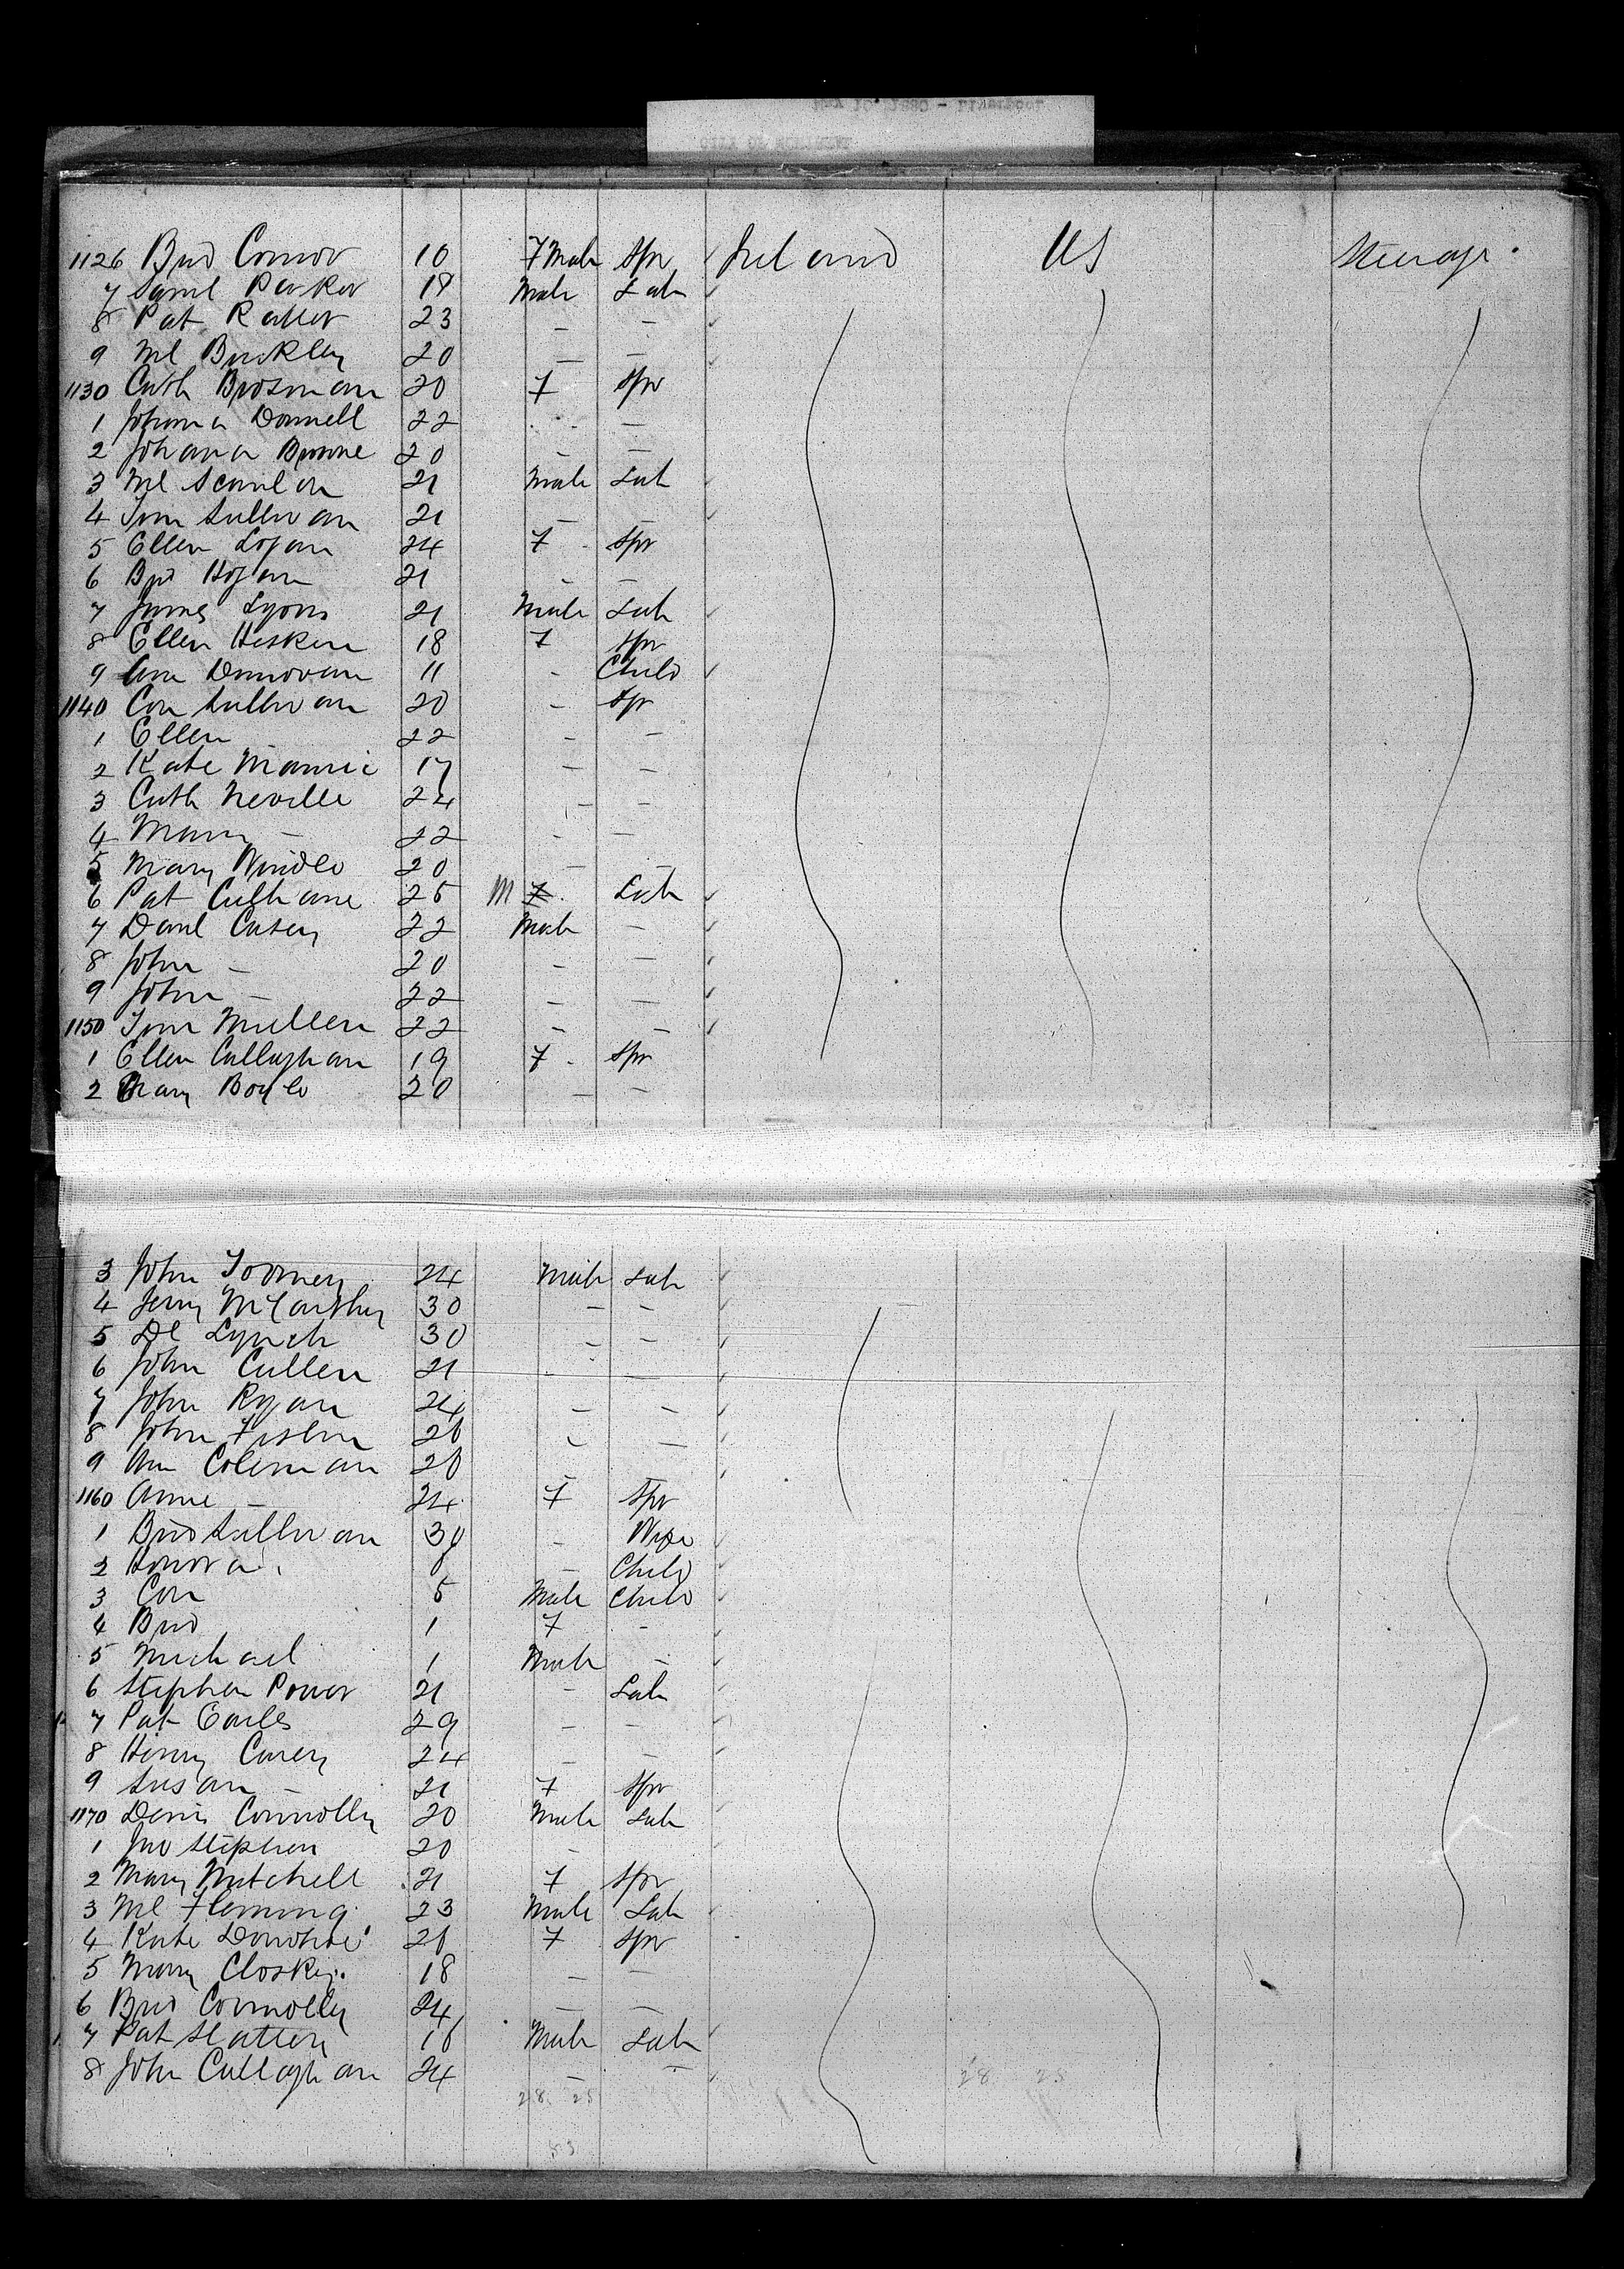 1126 Brid Connor 10 Female Spr Ireland US Steerage
7 Saml Parker 19 Male Lab
8 Pat 23 — —
9 Ml Buckley 20 — —
1130 Cath Brosnan 20 F Spr
1 Johanna Donnell 22 — —
2 Johana 20 — —
3 Ml Scanlon 21 Male Lab
4 Tim Sullivan 21 — —
5 Ellen Logan 24 F Spr
6 Brid Hogan 21 — —
7 James Lyons 21 Male Lab
8 Ellen 18 F Spr
9 Ann Donovan 11 — Child
1140 Con Sullivan 20 — Spr
1 Ellen 22 — —
2 Kate 17 — —
3 Cath Neville 24 — —
4 Mary — 22 — —
5 Mary Windle 20 — —
6 Pat Culhane 25 M F Lab
7 Danl Casey 22 Male —
8 John — 20 — —
9 John — 22 — —
1150 Tim Mullen 22 — —
1 Ellen Callaghan 19 F Spr
2 Mary Boyle 20 — —
3 John Toomey 24 Male Lab
4 Jerry McCarthy 30 — —
5 Dl Lynch 30 — —
6 John Cullen 21 — —
7 John Ryan 24 — —
8 John 26 — —
9 Wm Coleman 20 — —
1160 Annie — 24 F Spr
1 Brid Sullivan 30 — Wife
2 Honora 8 — Child
3 Con 5 Male Child
4 Brid 1 F -
5 Michael 1 Male —
6 Stephen Power 21 — Lab
7 Pat Earles 29 — —
8 Henry Carey 24 — —
9 Susan — 21 F Spr
1170 Denis Connolly 20 Male Lab
1 Jno Stephen 20 —
2 Mary Mitchell 21 F Spr
3 Ml Fleming 23 Male Lab
4 Kate Donohoe 26 F Spr
5 Mary Closkey 18 — —
6 Brid Connolly 24 — —
7 Pat Slattery 18 Male Lab
8 John Callaghan 24 — —
28 25 28 25
53